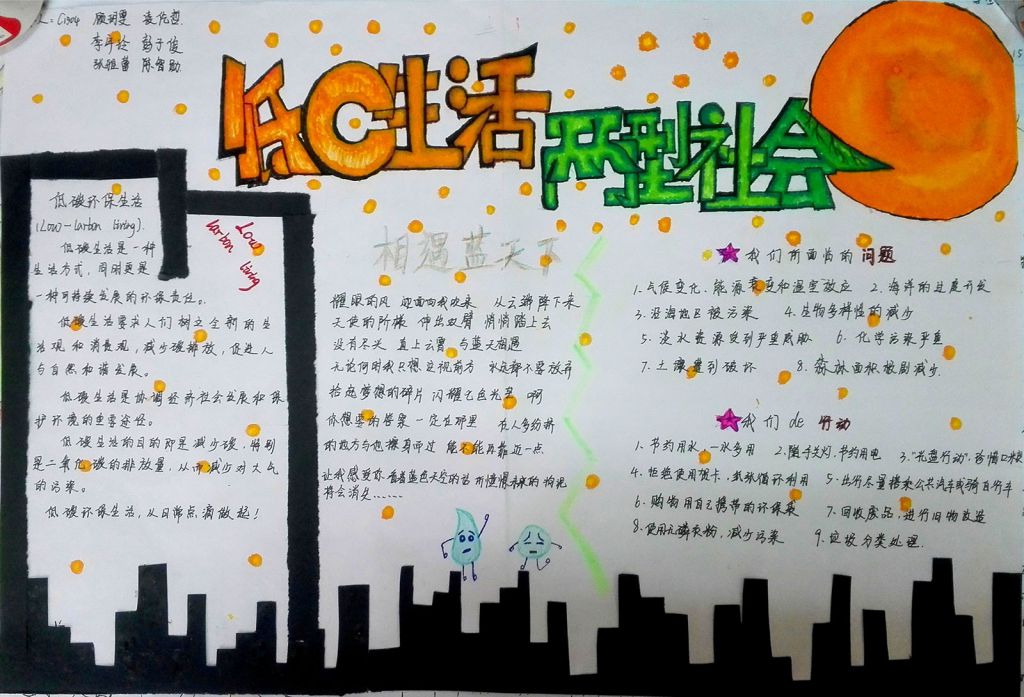 低C生活
两型社会
低碳环保生活
(Low-Carbon living).
低碳生活是一种
生活方式，同时更是
一种可持续发展的环保责任。
低碳生活要求人们树立全新的生
活观和消费观，减少碳排放，促进人
与自然和谐发展。
低碳生活是协调经济社会发展和保
护环境的重要途径。
低碳生活的目的即是减少碳，特别
是二氧化碳的排放量，从而减少对大气
的污染。
低碳环保生活，从日常点滴做起！
Low
Carbon
living
相遇蓝天下
耀眼的风 迎面向我吹来 从云端降下来
天使的阶梯 伸出双臂 悄悄踏上去
没有尽头 直上云霄 与蓝天相遇
无论何时我只想注视前方 永远都不要放弃
拾起梦想的碎片 闪耀七色光芒 啊
你想要的答案 一定在那里 在人多纷杂
的地方与他擦身而过 能不能再靠近一点
让我感受你
将会消失......
我们所面临的问题
1.气候变化、能源衰变和温室效应 2.海洋的过度开发
3.沿海地区被污染 4.生物多样性的减少
5.淡水资源受到严重威胁 6.化学污染严重
7.土壤遭到破坏 8.森林面积极剧减少.
我们de行动
1.节约用水，一水多用 2.随手关灯，节约用电 3."光盘行动"，珍惜
4.拒绝使用贺卡，纸张循环利用 5.出行尽量搭乘公共汽车或骑自行车
6.购物用自己携带的环保袋 7.回收废品，进行旧物改造
8.使用无磷衣物，减少污染 9.垃圾分类处理.